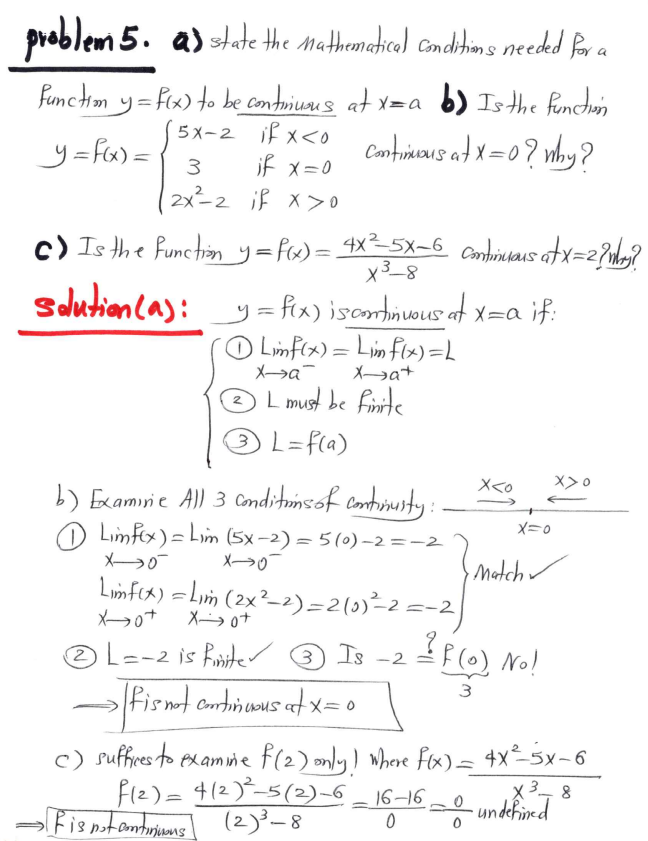 problem 5. a) state the Mathematical Conditions needed for a
function y=f(x) to be continuous at x=a b) Is the function
y=f(x)= { 5x-2 if x<0
3 if x=0 continuous at x=0? why?
2x²-2 if x>0
c) Is the function y=f(x)= (4x²-5x-6)/(x³-8) continuous at x=2? why?
Solution(a): y=f(x) is continuous at x=a if:
① Lim f(x) = Lim f(x)=L
x→a⁻ x→a⁺
② L must be finite
③ L=f(a)
b) Examine All 3 conditions of continuity: x<0 x>0
x=0
① Lim f(x) = Lim (5x-2) = 5(0)-2=-2
x→0⁻ x→0⁻
Match ✓
Lim f(x) = Lim (2x²-2)=2(0)²-2=-2
x→0⁺ x→0⁺
② L=-2 is finite ✓ ③ Is -2 ≟ f(0) No!
3
⇒ f is not continuous at x=0
c) suffices to examine f(2) only! where f(x) = (4x²-5x-6)/(x³-8)
f(2) = (4(2)²-5(2)-6)/((2)³-8) = (16-16)/0 = 0/0 undefined
⇒ f is not continuous